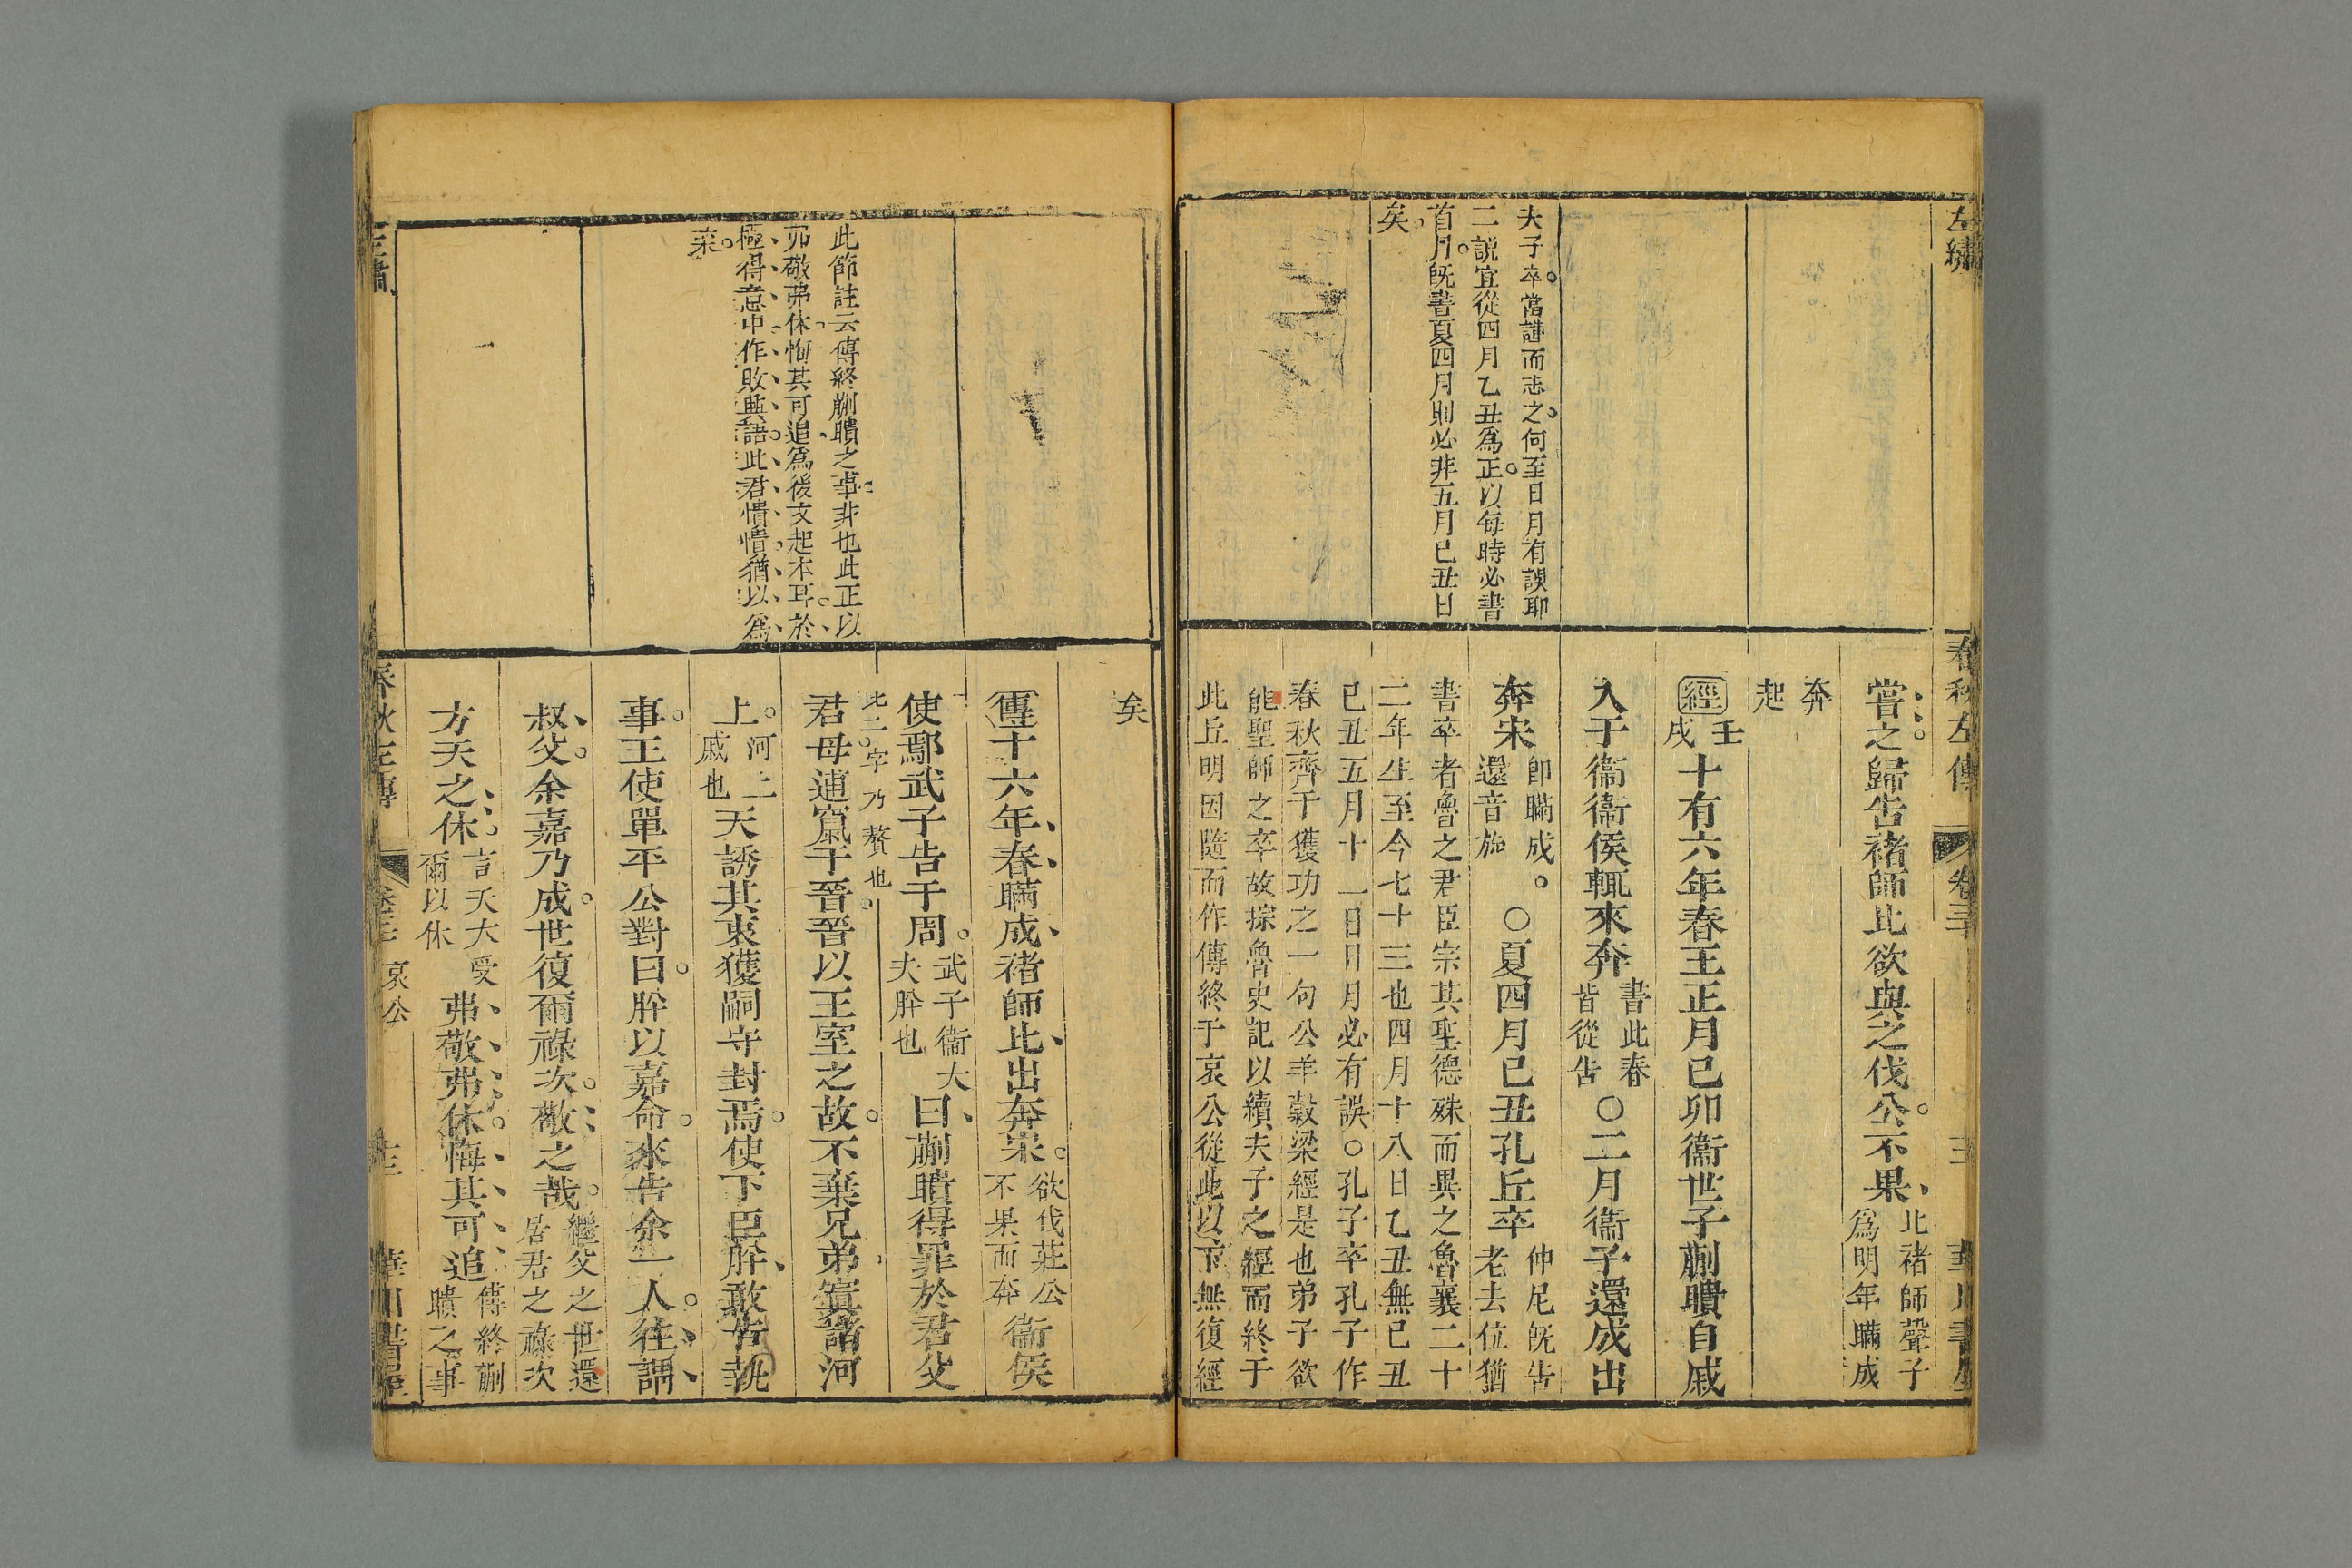 左繡
春秋左傳
卷三十
三
華川書屋
夫子卒當謹而志之何至日月有誤耶
二說宜從四月乙丑爲正以每時必書
首月既書夏四月則必非五月已丑日
矣
嘗之歸告褚師比欲與之伐公不果
北褚師聲子
爲明年瞞成
奔
起
經
壬
戌
十有六年春王正月已卯衞世子蒯聵自戚
入于衞衞侯輒來奔
書此春
皆從告
○二月衞子還成出
奔宋
卽瞞成
還音旋
○夏四月已丑孔丘卒
仲尼既告
老去位猶
書卒者魯之君臣宗其聖德殊而異之魯襄二十
二年生至今七十三也四月十八日乙丑無已丑
已丑五月十一日日月必有誤○孔子卒孔子作
春秋齊于獲功之一句公羊穀梁經是也弟子欲
能聖師之卒故採魯史記以續夫子之經而終于
此丘明因隨而作傳終于哀公從此以下無復經
此節註云傳終蒯聵之事非也此正以
弗敬弗休悔其可追爲後文起本耳於
極得意中作敗興語此君憒憒猶以爲
榮
矣
傳十六年春瞞成褚師比出奔宋
欲伐莊公
不果而奔
衞侯
使鄢武子告于周
武子衞大
夫肸也
曰蒯聵得罪於君父
此二字乃贅也
君母逋竄于晉晉以王室之故不棄兄弟寘諸河
上
河上
戚也
天誘其衷獲嗣守封焉使下臣肸敢告執
事王使單平公對曰肸以嘉命來告余一人往謂
叔父余嘉乃成世復爾祿次敬之哉
繼父之世還
居君之祿次
方天之休
言天大受
爾以休
弗敬弗休悔其可追
傳終蒯
聵之事
春秋左傳
哀公